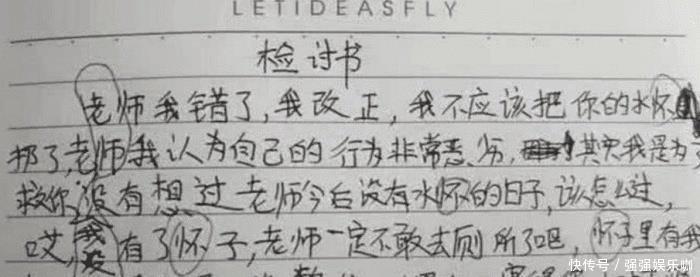 LETIDEASFLY
检讨书
老师我错了,我改正,我不应该把你的水怀
扔了,老师我认为自己的行为非常恶劣,其实我是为了
救你,没有想过老师今后没有水怀的日子,该怎么过,
哎,我没有了怀子,老师一定不敢去厕所了吧,怀子里有我
快传号/强强娱乐咖